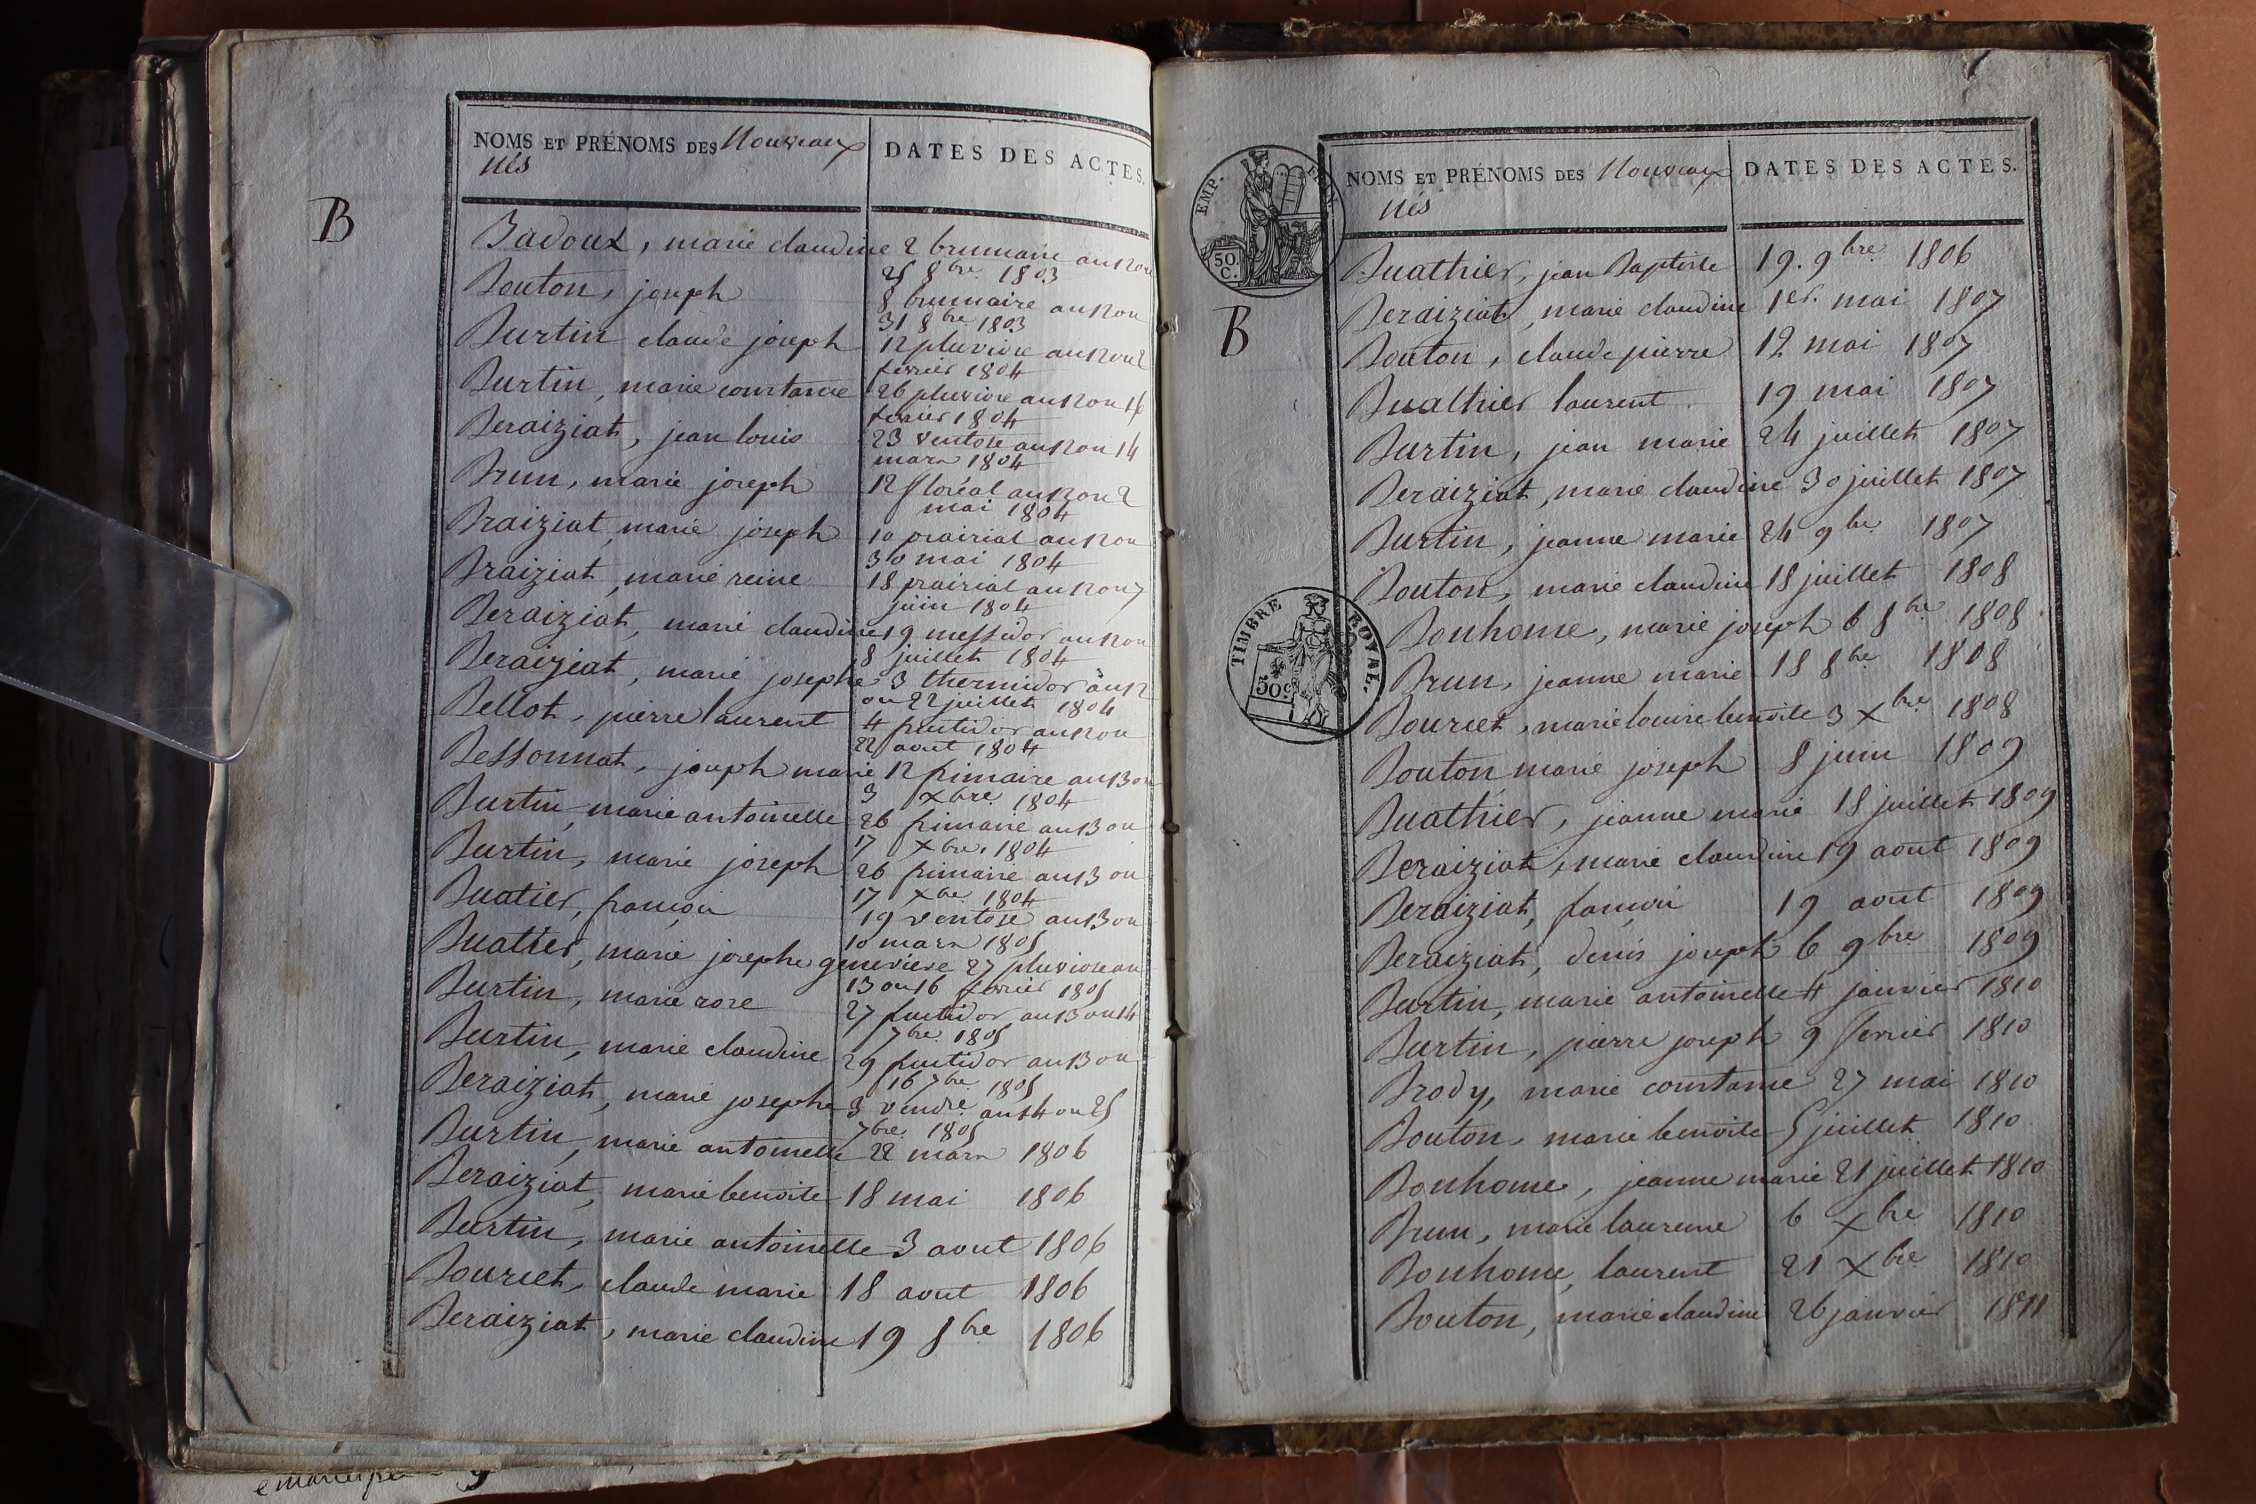 NOMS ET PRÉNOMS DES Nouveaux
nés
DATES DES ACTES.
B
Badoux, marie claudine 2 brumaire an 12 ou
25 8bre 1803
Bouton, joseph 8 brumaire an 12 ou
31 8bre 1803
Burtin claude joseph 12 pluviose an 12 ou 2
fevrier 1804
Burtin, marie constance 26 pluviose an 12 ou 16
fevrier 1804
Beraiziat, jean louis 23 ventose an 12 ou 14
mars 1804
Brun, marie joseph 12 floréal an 12 ou 2
mai 1804
Braiziat, marie joseph 10 prairial an 12 ou
30 mai 1804
Braiziat, marie reine 18 prairial an 12 ou 7
juin 1804
Beraiziat, marie claudine 19 messidor an 12 ou
8 juillet 1804
Beraiziat, marie josephe 3 thermidor an 12
ou 22 juillet 1804
Bellot, pierre laurent 4 fructidor an 12 ou
22 aout 1804
Bessonnat, joseph marie 12 frimaire an 13 ou
3 xbre 1804
Burtin, marie antoinette 26 frimaire an 13 ou
17 xbre 1804
Burtin, marie joseph 26 frimaire an 13 ou
17 xbre 1804
Buatier, françois 19 ventose an 13 ou
10 mars 1805
Buatier, marie josephe genevieve 27 pluviose an
13 ou 16 fevrier 1805
Burtin, marie rose 27 fructidor an 13 ou 14
7bre 1805
Burtin, marie claudine 29 fructidor an 13 ou
16 7bre 1805
Beraiziat, marie josephe 3 vendre an 14 ou 25
7bre 1805
Burtin, marie antoinette 22 mars 1806
Beraiziat, marie benoite 18 mai 1806
Burtin, marie antoinette 3 aout 1806
Bourcet, claude marie 18 aout 1806
Beraiziat, marie claudine 19 8bre 1806
EMP.
50.
C.
NOMS ET PRÉNOMS DES Nouveaux
nés
DATES DES ACTES.
B
TIMBRE ROYAL.
50c
Buathier, jean Baptiste 19. 9bre 1806
Beraiziat, marie claudine 1er. mai 1807
Bouton, claude pierre 12 mai 1807
Buathier laurent 19 mai 1807
Burtin, jean marie 24 juillet 1807
Beraiziat, marie claudine 30 juillet 1807
Burtin, jeanne marie 24 9bre 1807
Bouton, marie claudine 18 juillet 1808
Bonhome, marie joseph 6 8bre 1808
Brun, jeanne marie 18 8bre 1808
Bourcet, marie louise benoite 3 xbre 1808
Bouton marie joseph 8 juin 1809
Buathier, jeanne marie 18 juillet 1809
Beraiziat, marie claudine 19 aout 1809
Beraiziat, françois 19 aout 1809
Beraiziat, denis joseph 6 9bre 1809
Burtin, marie antoinette 4 janvier 1810
Burtin, pierre joseph 9 fevrier 1810
Brody, marie constance 27 mai 1810
Bouton, marie benoite 5 juillet 1810
Bonhome, jeanne marie 21 juillet 1810
Brun, marie laurence 6 xbre 1810
Bonhome, laurent 21 xbre 1810
Bouton, marie claudine 26 janvier 1811